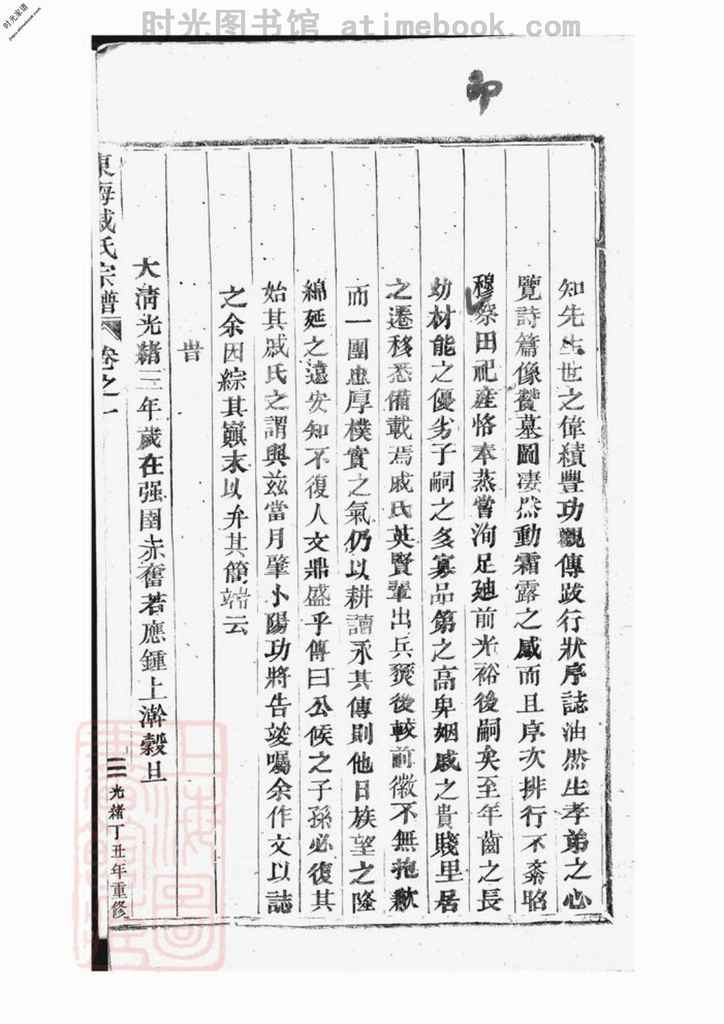 时光图书馆 atimebook.com
时光家谱
印
知先生世之偉績豐功觀傳跋行狀序誌油然生孝弟之心
覽詩篇像贊墓圖凄然動霜露之感而且序次排行不紊昭
穆祭田祀產恪奉蒸嘗洵足廸前光裕後嗣矣至年齒之長
幼材能之優劣子嗣之多寡品第之高卑姻戚之貴賤里居
之遷移悉備載焉戚氏英賢輩出兵燹後較前徽不無抱歉
而一團忠厚樸實之氣仍以耕讀永其傳則他日族望之隆
綿延之遠安知不復人文鼎盛乎傳曰公侯之子孫必復其
始其戚氏之謂與兹當月肇小陽功將告竣囑余作文以誌
之余因綜其巔末以弁其簡端云
旹
大清光緒三年歲在强圉赤奮若應鍾上澣穀旦
東海戚氏宗譜 卷之一
三 光緒丁丑年重修
上海圖書館藏